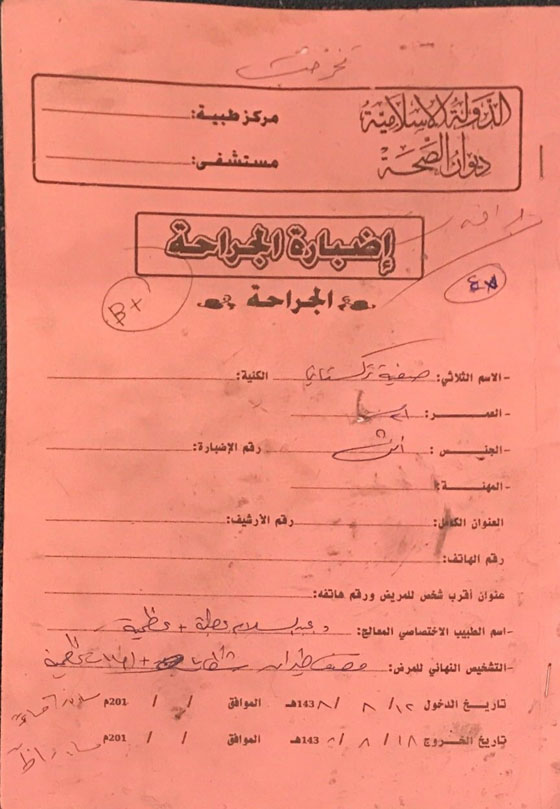 تخرجت
الدولة الإسلامية
ديوان الصحة
مركز طبية:
مستشفى:
إضبارة الجراحة
الجراحة
B+
- الاسم الثلاثي: صفية تركستاني الكنية:
- العمــــر:
- الجنـــس: أنثى رقم الإضبارة:
- المهنــة:
العنوان الكامل: رقم الأرشيف:
رقم الهاتف:
عنوان أقرب شخص للمريض ورقم هاتفه:
- اسم الطبيب الاختصاصي المعالج: د. عبد السلام + عظمية
- التشخيص النهائي للمرض: قصف طيران شظايا +
تاريـخ الدخول ١٢ / ٨ / 143٨هـ الموافق / / 201م
تاريخ الخروج ١٨ / ٨ / 143هـ الموافق / / 201م